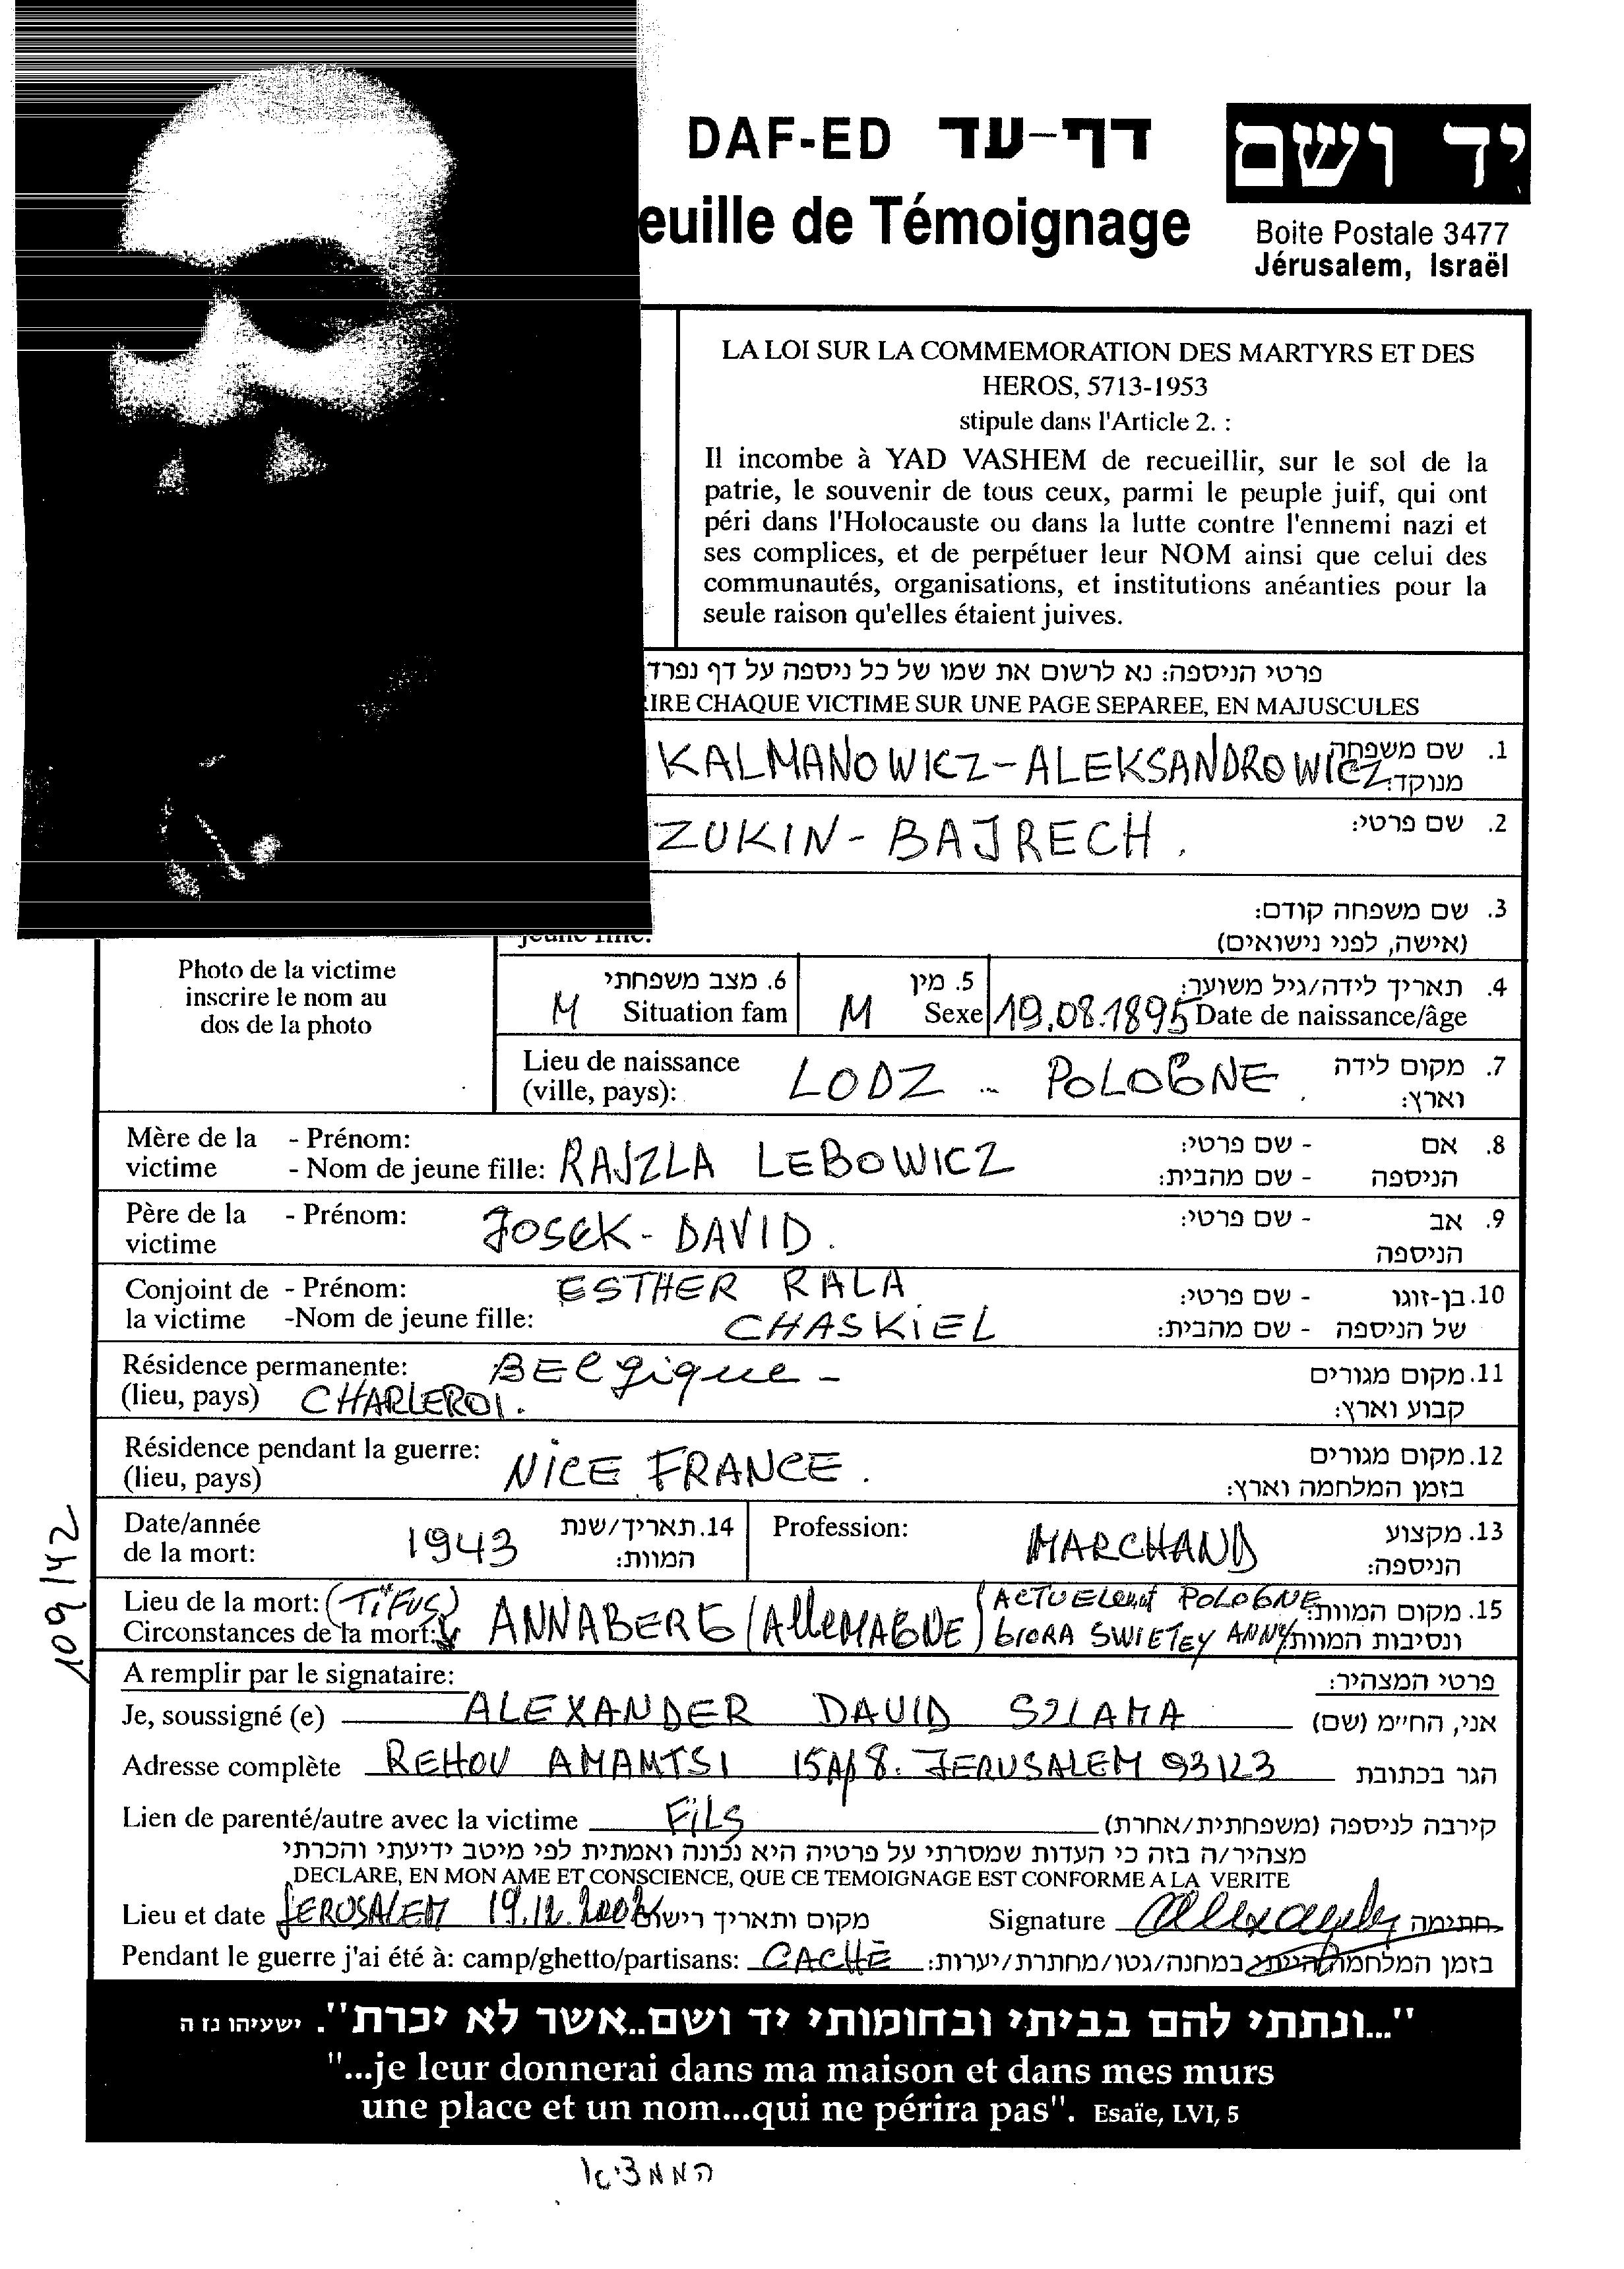 DAF-ED דף-עד
יד ושם
euille de Témoignage
Boite Postale 3477
Jérusalem, Israël
LA LOI SUR LA COMMEMORATION DES MARTYRS ET DES
HEROS, 5713-1953
stipule dans l'Article 2. :
Il incombe à YAD VASHEM de recueillir, sur le sol de la
patrie, le souvenir de tous ceux, parmi le peuple juif, qui ont
péri dans l'Holocauste ou dans la lutte contre l'ennemi nazi et
ses complices, et de perpétuer leur NOM ainsi que celui des
communautés, organisations, et institutions anéanties pour la
seule raison qu'elles étaient juives.
פרטי הניספה: נא לרשום את שמו של כל ניספה על דף נפרד
IRE CHAQUE VICTIME SUR UNE PAGE SEPAREE, EN MAJUSCULES
KALMANOWICZ-ALEKSANDROWICZ 1. שם משפחה
מנוקד:
ZUKIN-BAJRECH. 2. שם פרטי:
3. שם משפחה קודם:
jeune fille: (אישה, לפני נישואים)
Photo de la victime
inscrire le nom au
dos de la photo
6. מצב משפחתי 5. מין 4. תאריך לידה/גיל משוער:
M Situation fam M Sexe 19.08.1895 Date de naissance/âge
Lieu de naissance LODZ - POLOGNE 7. מקום לידה
(ville, pays): וארץ:
Mère de la - Prénom: 8. אם - שם פרטי:
victime - Nom de jeune fille: RAJZLA LEBOWICZ הניספה - שם מהבית:
Père de la - Prénom: JOSEK-DAVID. 9. אב - שם פרטי:
victime הניספה
Conjoint de - Prénom: ESTHER RALA 10. בן-זוגו - שם פרטי:
la victime -Nom de jeune fille: CHASKIEL של הניספה - שם מהבית:
Résidence permanente: BELgique - 11. מקום מגורים
(lieu, pays) CHARLEROI. קבוע וארץ:
Résidence pendant la guerre: NICE FRANCE. 12. מקום מגורים
(lieu, pays) בזמן המלחמה וארץ:
Date/année 1943 14. תאריך/שנת Profession: MARCHAND 13. מקצוע
de la mort: המוות: הניספה:
Lieu de la mort: (TiFUS) ANNABERG (AlleMAGNE) ACTUELemt POLOGNE 15. מקום המוות:
Circonstances de la mort: GIORA SWIETEY ANNY ונסיבות המוות
A remplir par le signataire: פרטי המצהיר:
Je, soussigné (e) ALEXANDER DAVID SZLAMA אני, החיימ (שם)
Adresse complète REHOV AMAMTSI 15 8. JERUSALEM 93123 הגר בכתובת
Lien de parenté/autre avec la victime FiLS קירבה לניספה (משפחתית/אחרת)
מצהיר/ה בזה כי העדות שמסרתי על פרטיה היא נכונה ואמתית לפי מיטב ידיעתי והכרתי
DECLARE, EN MON AME ET CONSCIENCE, QUE CE TEMOIGNAGE EST CONFORME A LA VERITE
Lieu et date JERUSALEM מקום ותאריך רישום Signature חתימה
Pendant le guerre j'ai été à: camp/ghetto/partisans: CACHÉ בזמן המלחמה הייתי במחנה/גטו/מחתרת/יערות:
"...ונתתי להם בביתי ובחומותי יד ושם..אשר לא יכרת". ישעיהו נז ה
"...je leur donnerai dans ma maison et dans mes murs
une place et un nom...qui ne périra pas". Esaïe, LVI, 5
109/42